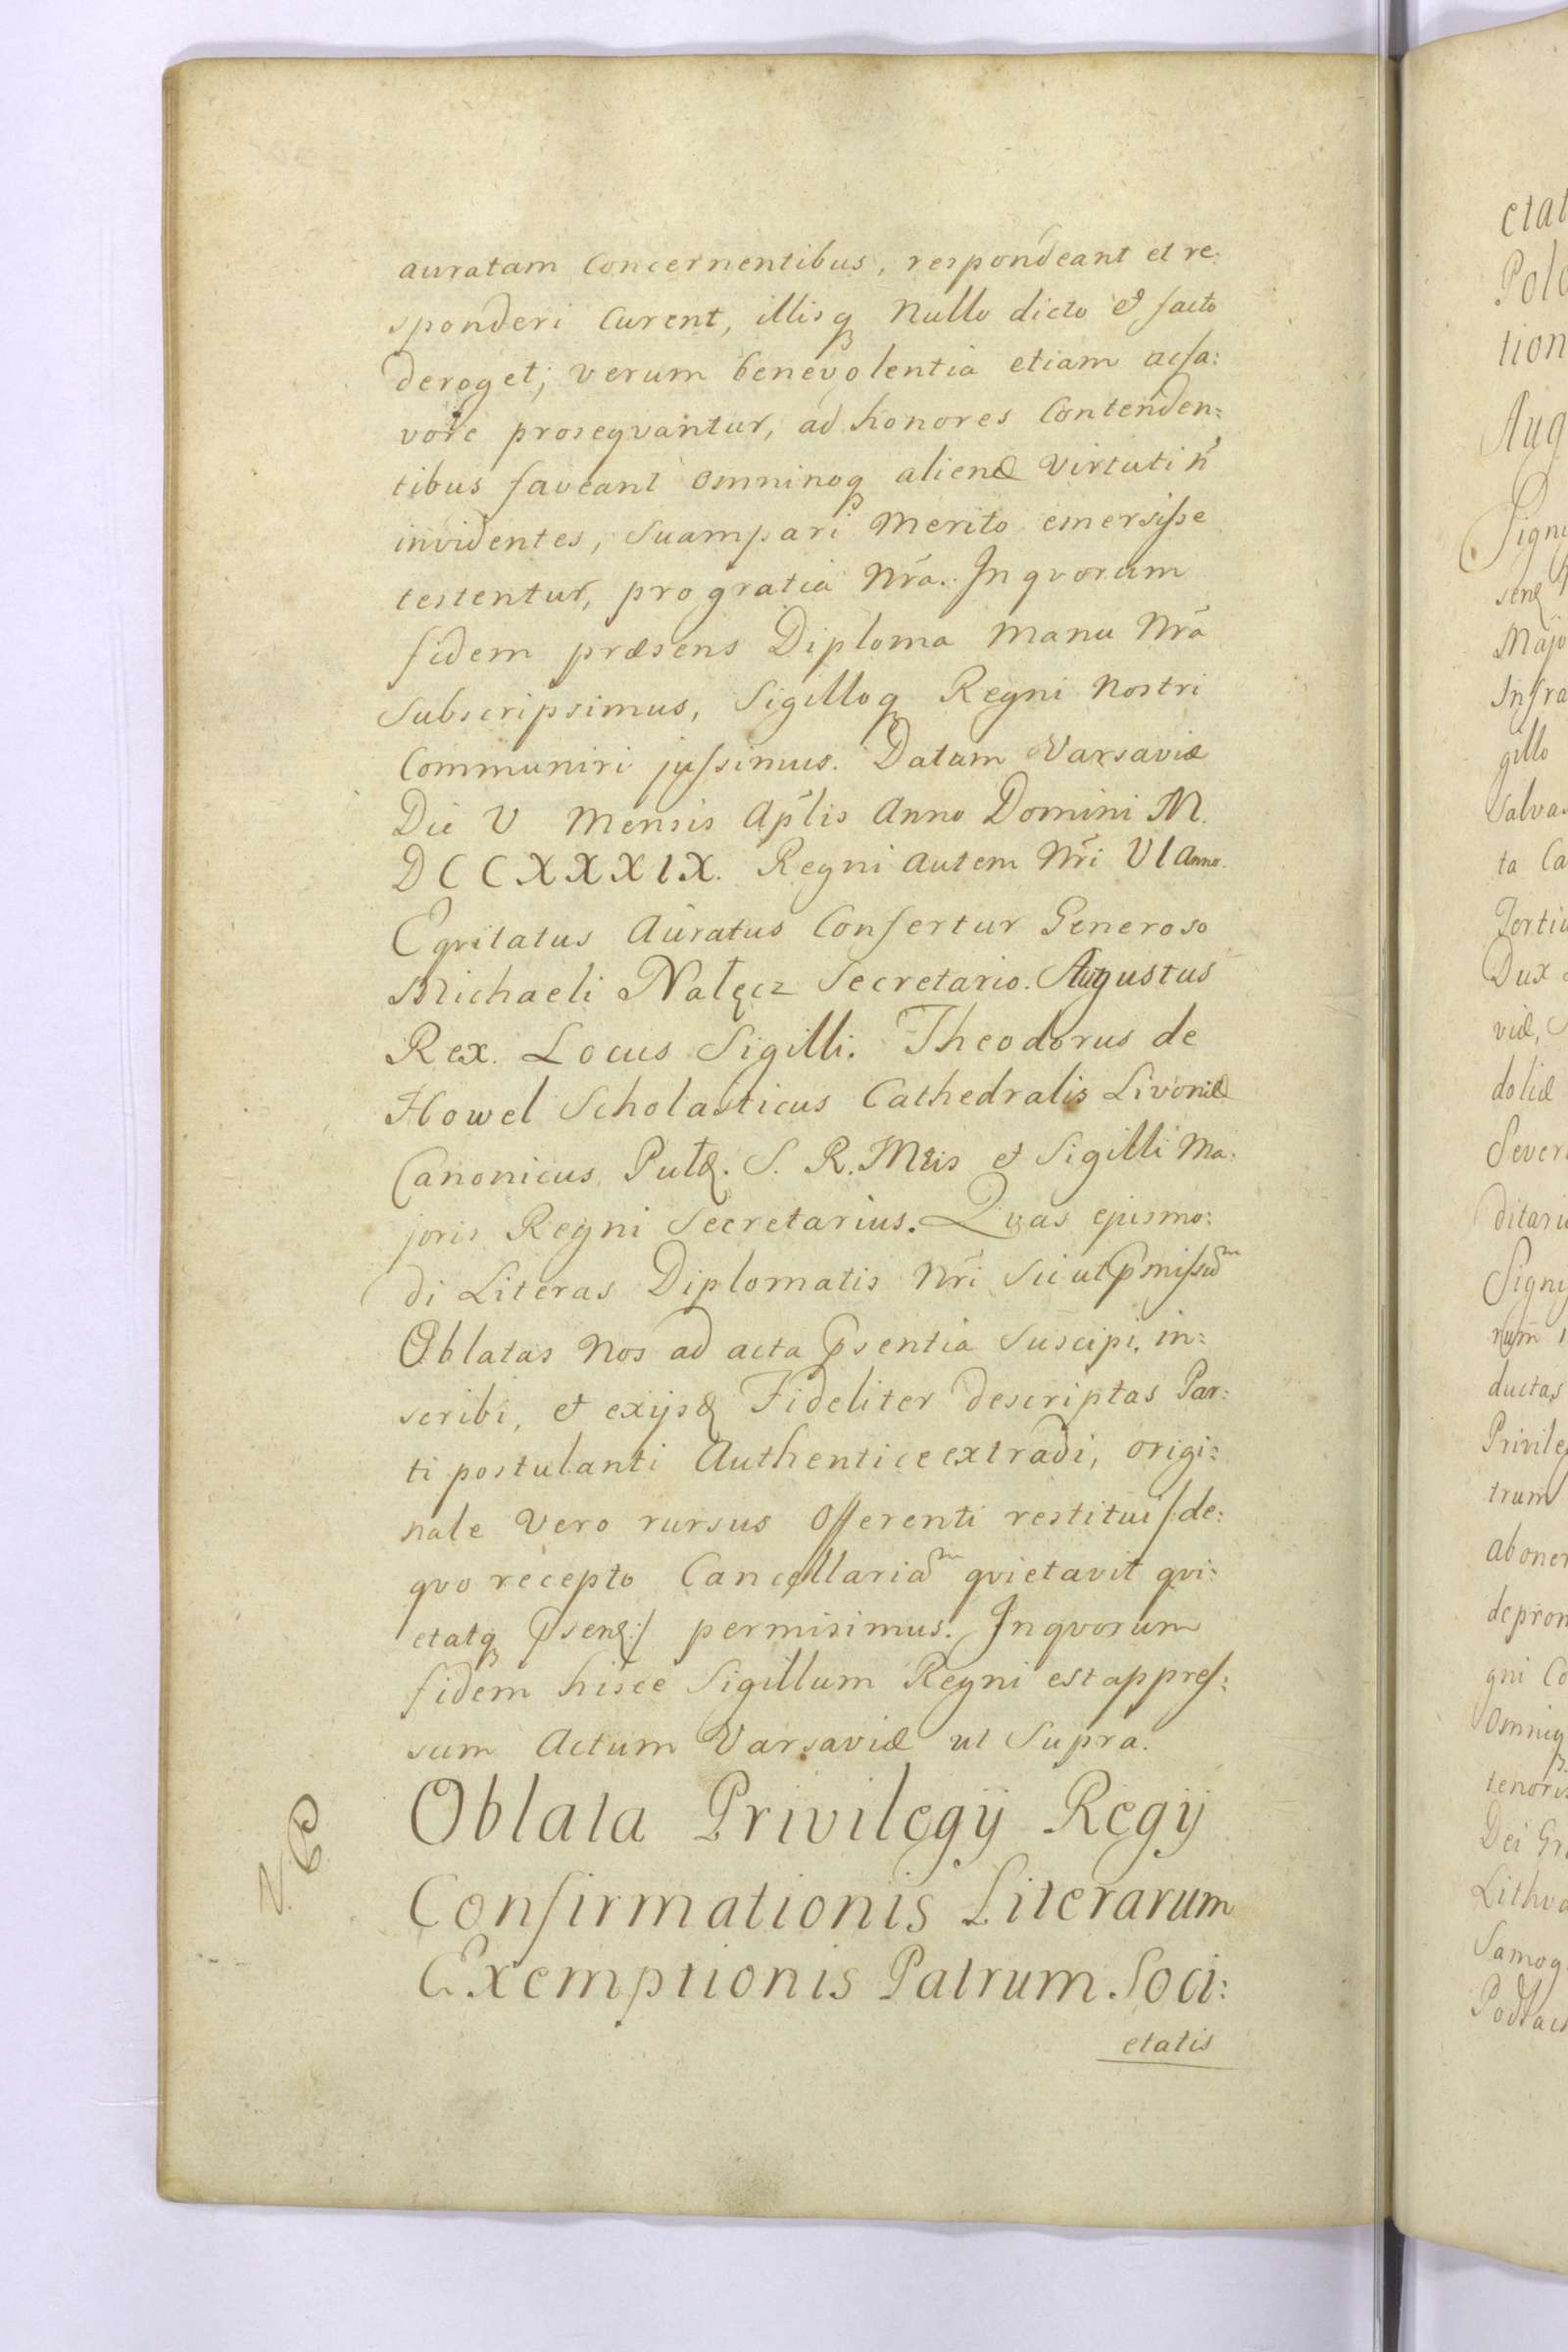 auratam Concernentibus, respondeant et re:
sponderi Curent, illisq Nullo dicto et facto
deroget; verum benevolentia etiam acfa:
vore proseqvantur, ad honores Contenden:
tibus faveant omninoq alienæ virtuti ñ
invidentes, Suampari Merito emersisse
testentur, pro gratia Nrã. In qvorum
fidem præsens Diploma Manu Nrã
Subscripsimus, Sigilloq Regni Nostri
Communiri jussimus. Datum Varsaviæ
Die V Mensis Aplis Anno Domini M.
DCCXXXIX. Regni autem Nri VI Anno.
Eqvitatus Auratus Confertur Generoso
Michaeli Nałęcz Secretario. Augustus
Rex. Locus Sigilli. Theodorus de
Howel Scholasticus Cathedralis Livoniæ
Canonicus Pułt. S. R. Mtis et Sigilli Ma:
joris Regni Secretarius. Qvas ejusmo:
di Literas Diplomatis Nri Sicut pmissum
Oblatas Nos ad acta psentia Suscipi, in:
scribi, et exijsd Fideliter descriptas Par:
ti postulanti Authentice extradi, origi:
nale Vero rursus Offerenti restitui /de:
qvo recepto Cancellariam qvietavit qvi:
etatq psen:/ permisimus. In qvorum
fidem hisce Sigillum Regni est appres:
sum Actum Varsaviæ ut Supra.
Oblata Privilegij Regij
Confirmationis Literarum
Exemptionis Patrum Soci:
etatis
etat
Polo
tion
Aug
Sign
Majo
Infra
gillo
Salva
ta Ca
Tertiu
Dux
viæ, S
doliæ
Sever
ditariu
Sign
rum
ductas
Privileg
trum
ab oner
depron
gni Co
Omniq
tenoris
Dei Gr
Lithva
Samog
Podlac